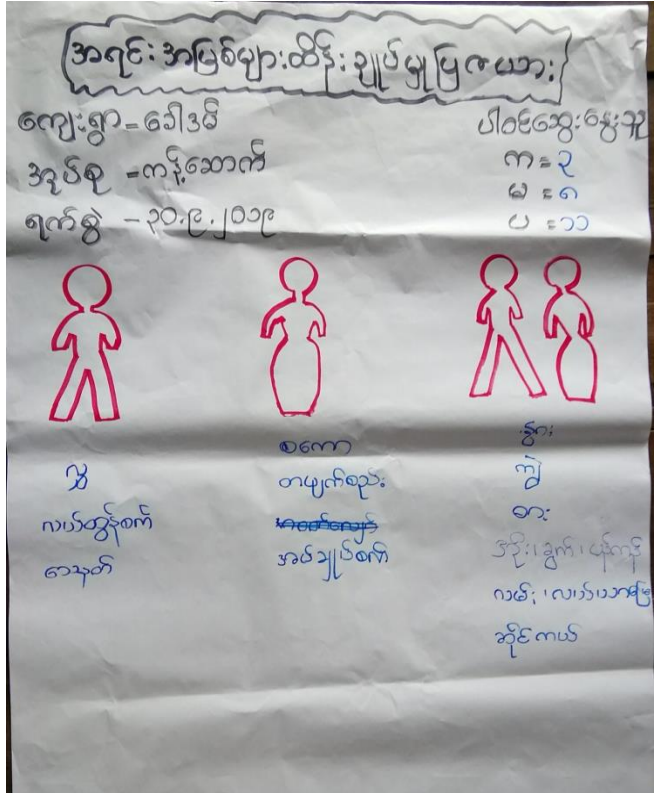 အရင်းအမြစ်များထိန်းချုပ်မှုပြဇယား
ကျေးရွာ = ခေါဒမ်
အုပ်စု = ကန့်ဆောက်
ရက်စွဲ - ၃၀.၉.၂၀၁၉
ပါဝင်ဆွေးနွေးသူ
က = ၃
မ = ၈
ပ = ၁၁
လှဲ
လယ်ထွန်စက်
သေနတ်
စကော
တမျက်စည်း
အပ်ချုပ်စက်
နွား
ကျွဲ
ဓား
အိုး၊ ခွက်၊ ပန်ကန်
လမ်း၊ လယ်ယာမြေ
ဆိုင်ကယ်